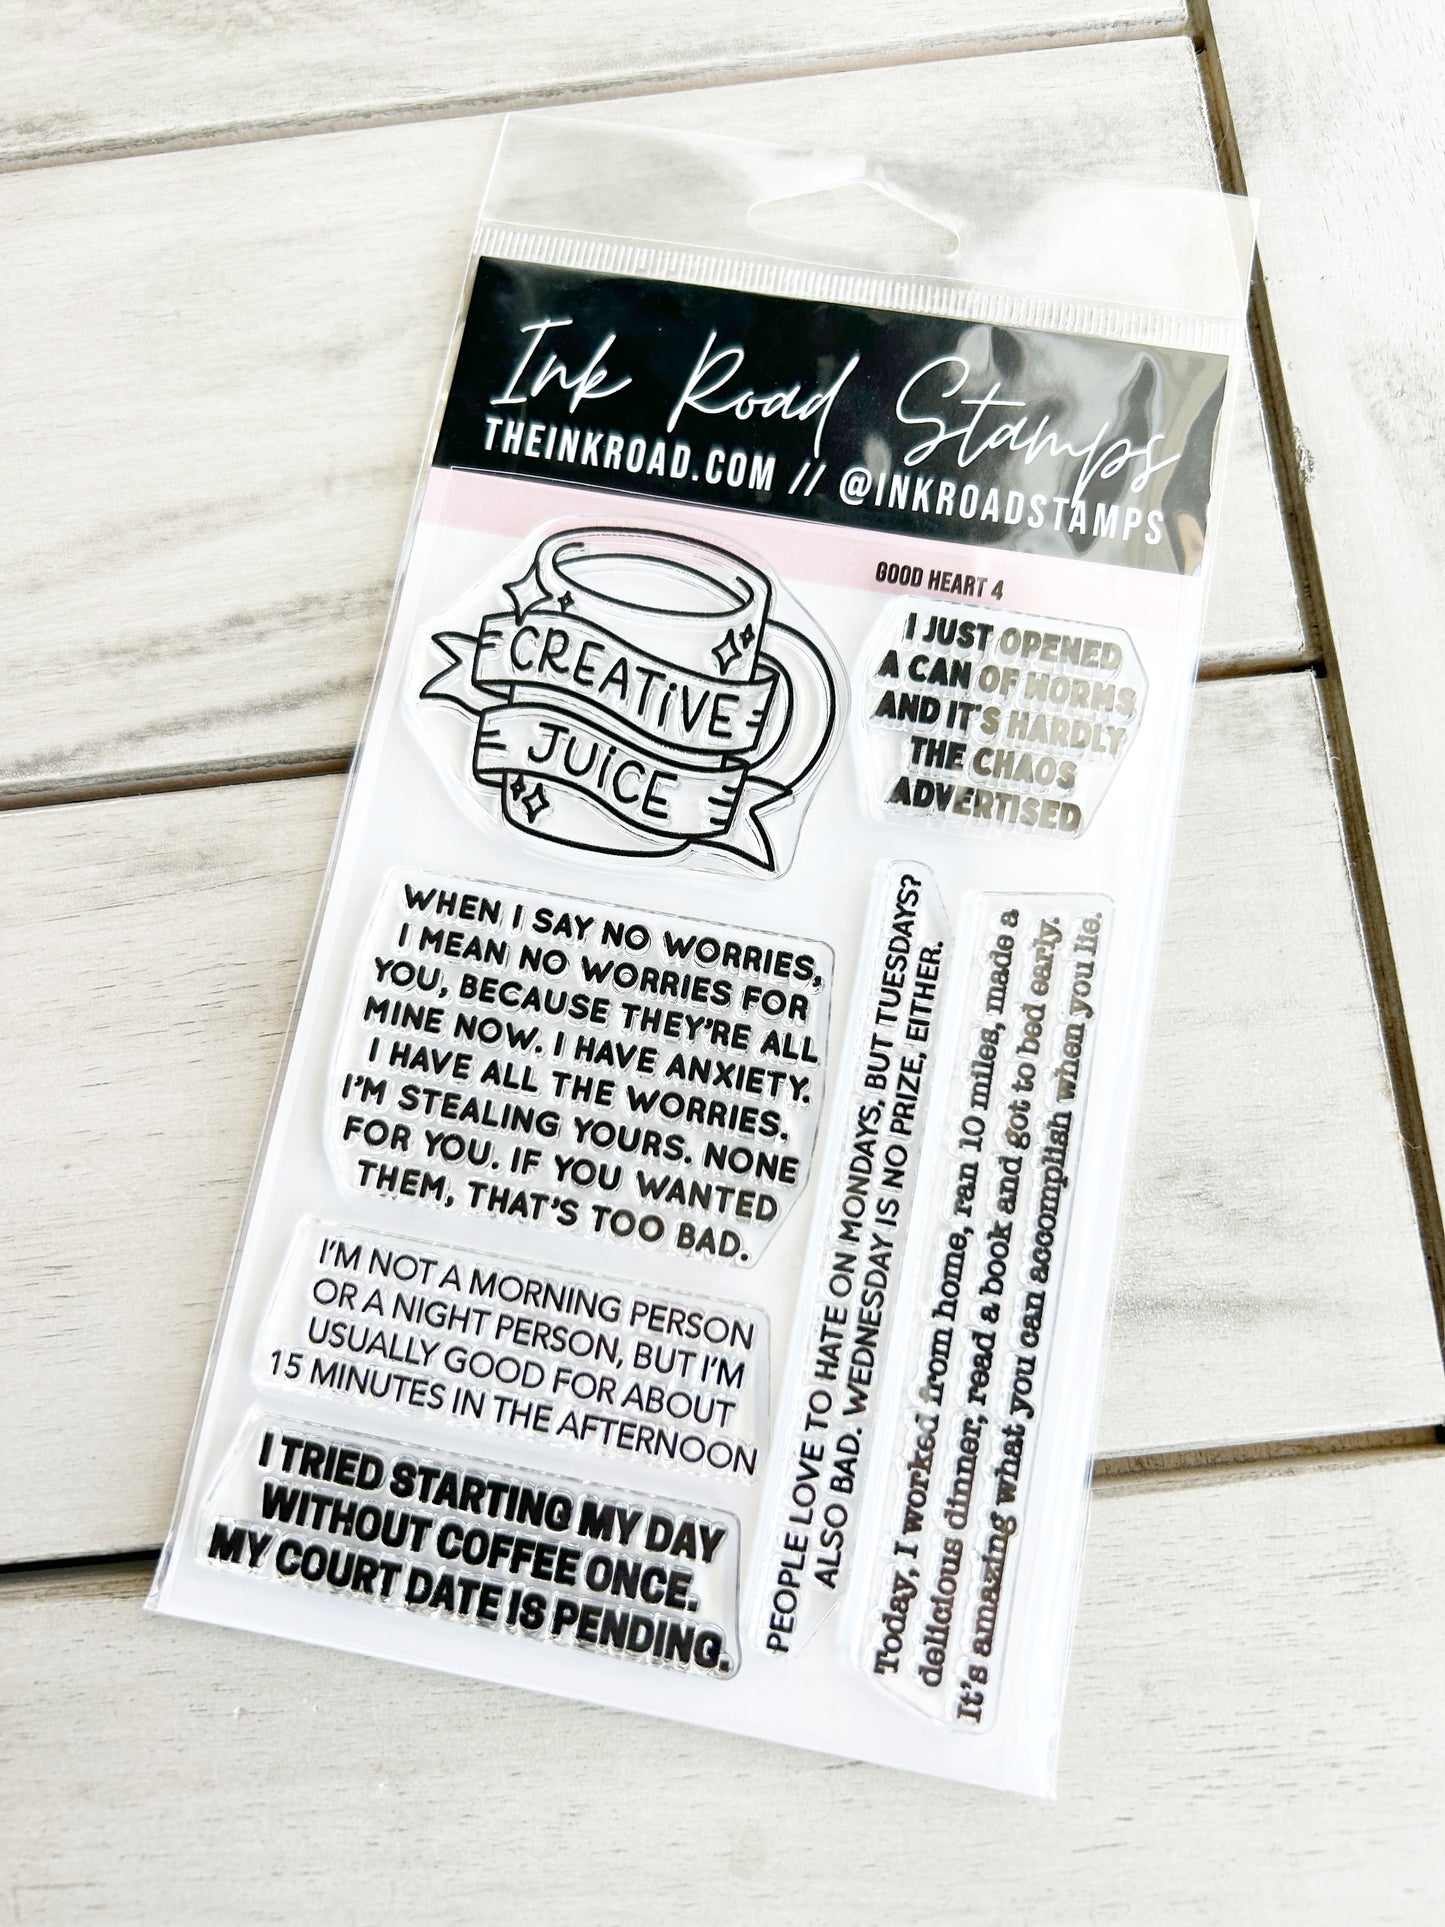 Ink Road Stamps
THEINKROAD.COM // @INKROADSTAMPS
GOOD HEART 4
CREATIVE
JUICE
I JUST OPENED
A CAN OF WORMS
AND IT'S HARDLY
THE CHAOS
ADVERTISED
WHEN I SAY NO WORRIES,
I MEAN NO WORRIES FOR
YOU, BECAUSE THEY'RE ALL
MINE NOW. I HAVE ANXIETY.
I HAVE ALL THE WORRIES.
I'M STEALING YOURS. NONE
FOR YOU. IF YOU WANTED
THEM, THAT'S TOO BAD.
I'M NOT A MORNING PERSON
OR A NIGHT PERSON, BUT I'M
USUALLY GOOD FOR ABOUT
15 MINUTES IN THE AFTERNOON
I TRIED STARTING MY DAY
WITHOUT COFFEE ONCE.
MY COURT DATE IS PENDING.
PEOPLE LOVE TO HATE ON MONDAYS, BUT TUESDAYS?
ALSO BAD. WEDNESDAY IS NO PRIZE, EITHER.
Today, I worked from home, ran 10 miles, made a
delicious dinner, read a book and got to bed early.
It's amazing what you can accomplish when you lie.